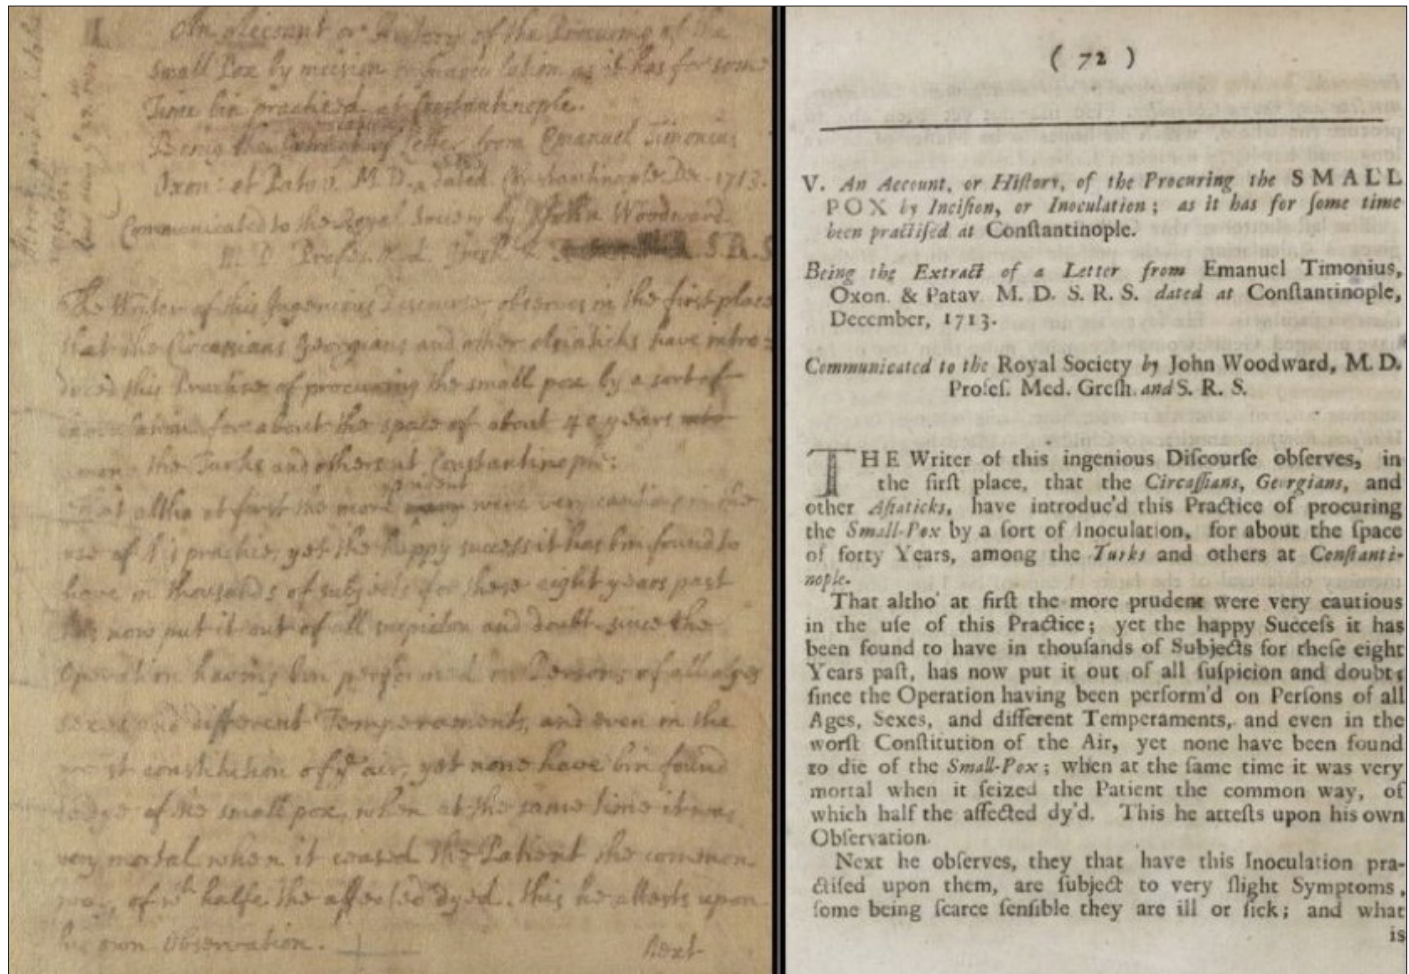 An account or History of the Procuring of the
small Pox by incision or inoculation as it has for some
Time bin practised at Constantinople.
Being the Letter from Emanuel Timonius
Oxon: et Patav. M.D. dated Constantinople De. 1713.
Communicated to the Royal Society by John Woodward
M.D. Profes. Med. Gresh. S.R.S
The Writer of this Ingenious Discourse observes in the first place
that the Circassians Georgians and other Asiaticks have intro=
duced this Practise of procuring the small pox by a sort of
for about the space of about 40 years
the Turks and others at Constantinople:
altho at first the more prudent were very cautious in the
use of this practise, yet the happy success it has bin found to
have in thousands of subjects for these eight years past
has now put it out of all suspicion and doubt since the
Operation having bin performed on Persons of all ages
sexes and different Temperaments, and even in the
worst constitution of ye air, yet none have bin found
to dye of the small pox, when at the same time it was
very mortal when it ceased the Patient the common
way, of wh halfe the affected dyed. this he attests upon
his own observation.
Next
( 72 )
V. An Account, or Hiſtory, of the Procuring the SMALL
POX by Inciſion, or Inoculation; as it has for ſome time
been practiſed at Conſtantinople.
Being the Extract of a Letter from Emanuel Timonius,
Oxon. & Patav. M. D. S. R. S. dated at Conſtantinople,
December, 1713.
Communicated to the Royal Society by John Woodward, M. D.
Profeſ. Med. Greſh. and S. R. S.
THE Writer of this ingenious Diſcourſe obſerves, in
the firſt place, that the Circaſſians, Georgians, and
other Aſiaticks, have introduc'd this Practice of procuring
the Small-Pox by a ſort of Inoculation, for about the ſpace
of forty Years, among the Turks and others at Conſtanti-
nople.
That altho' at firſt the more prudent were very cautious
in the uſe of this Practice; yet the happy Succeſs it has
been found to have in thouſands of Subjects for theſe eight
Years paſt, has now put it out of all ſuſpicion and doubt;
ſince the Operation having been perform'd on Perſons of all
Ages, Sexes, and different Temperaments, and even in the
worſt Conſtitution of the Air, yet none have been found
to die of the Small-Pox; when at the ſame time it was very
mortal when it ſeized the Patient the common way, of
which half the affected dy'd. This he atteſts upon his own
Obſervation.
Next he obſerves, they that have this Inoculation pra-
ctiſed upon them, are ſubject to very ſlight Symptoms,
ſome being ſcarce ſenſible they are ill or ſick; and what
is